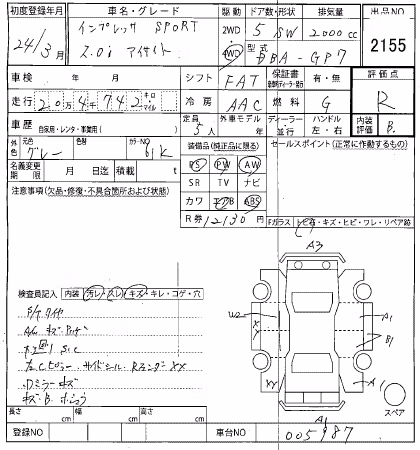 初度登録年月 車名・グレード 駆動 ドア数・形状 排気量 出品NO
24/3月 インプレッサ SPORT 2WD 4WD 5 SW 2000cc 2155
2.0i アイサイト 型式 DBA-GP7
車検 年 月 シフト FAT 保証書 有・無 評価点
走行 20万4千742 キロ マイル 冷房 AAC 燃料 G R
車歴 自家用・レンタ・事業用 定員 5人 外車モデル 年 ディーラー 並行 ハンドル 左・右 内装評価 B
外色 元色 グレー 色替 カラーNO 61K 装備品(純正品に限る) セールスポイント(正常に作動するもの)
名義変更期限 月 日迄 積載 t PS PW AW
SR TV ナビ
注意事項(欠品・修復・不具合箇所および状態) カワ エアB ABS
R券 12130円 Fガラス トビ石・キズ・ヒビ・ワレ・リペア跡
A3
検査員記入 内装 汚レ・スレ・キズ・キレ・コゲ・穴
W2 A1
X B1
左Cピラー サイドシル Rフェンダー XX
XX A1
ドアミラー キズ
キズ B
長さ cm 幅 cm 高さ cm スペア
A1
登録NO 車台NO 005987